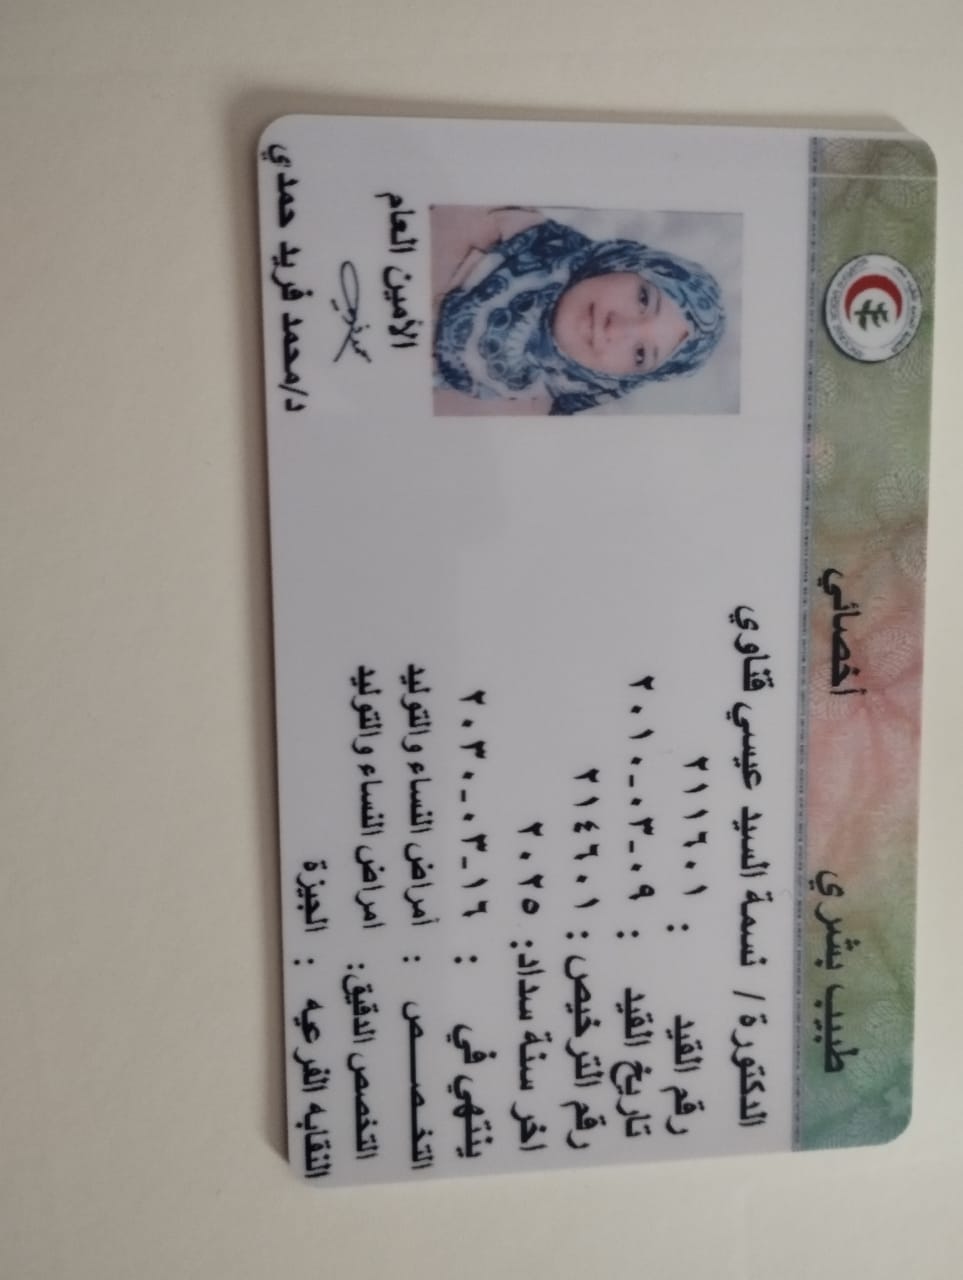 طبيب بشري أخصائي
الدكتورة / نسمة السيد عيسي قناوي
رقم القيد : ٢١١٦٠١
تاريخ القيد : ٢٠١٠-٠٣-٠٩
رقم الترخيص : ٢١٤٦٠١
اخر سنة سداد: ٢٠٢٥
ينتهي في : ٢٠٣٠-٠٣-١٦
التخـصــــص : أمراض النساء والتوليد
التخصص الدقيق: امراض النساء والتوليد
النقابه الفرعيه : الجيزة
الأمين العام
د/محمد فريد حمدي